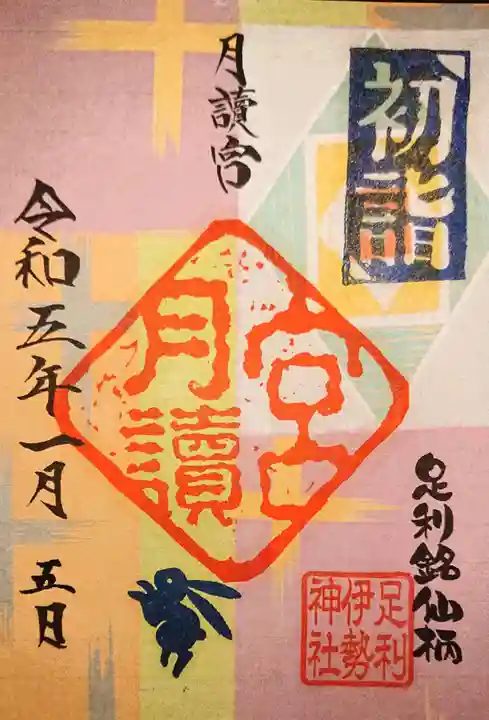 初詣
足利銘仙柄
足利
伊勢
神社
月讀宮
宮
月讀
令和五年一月 五日